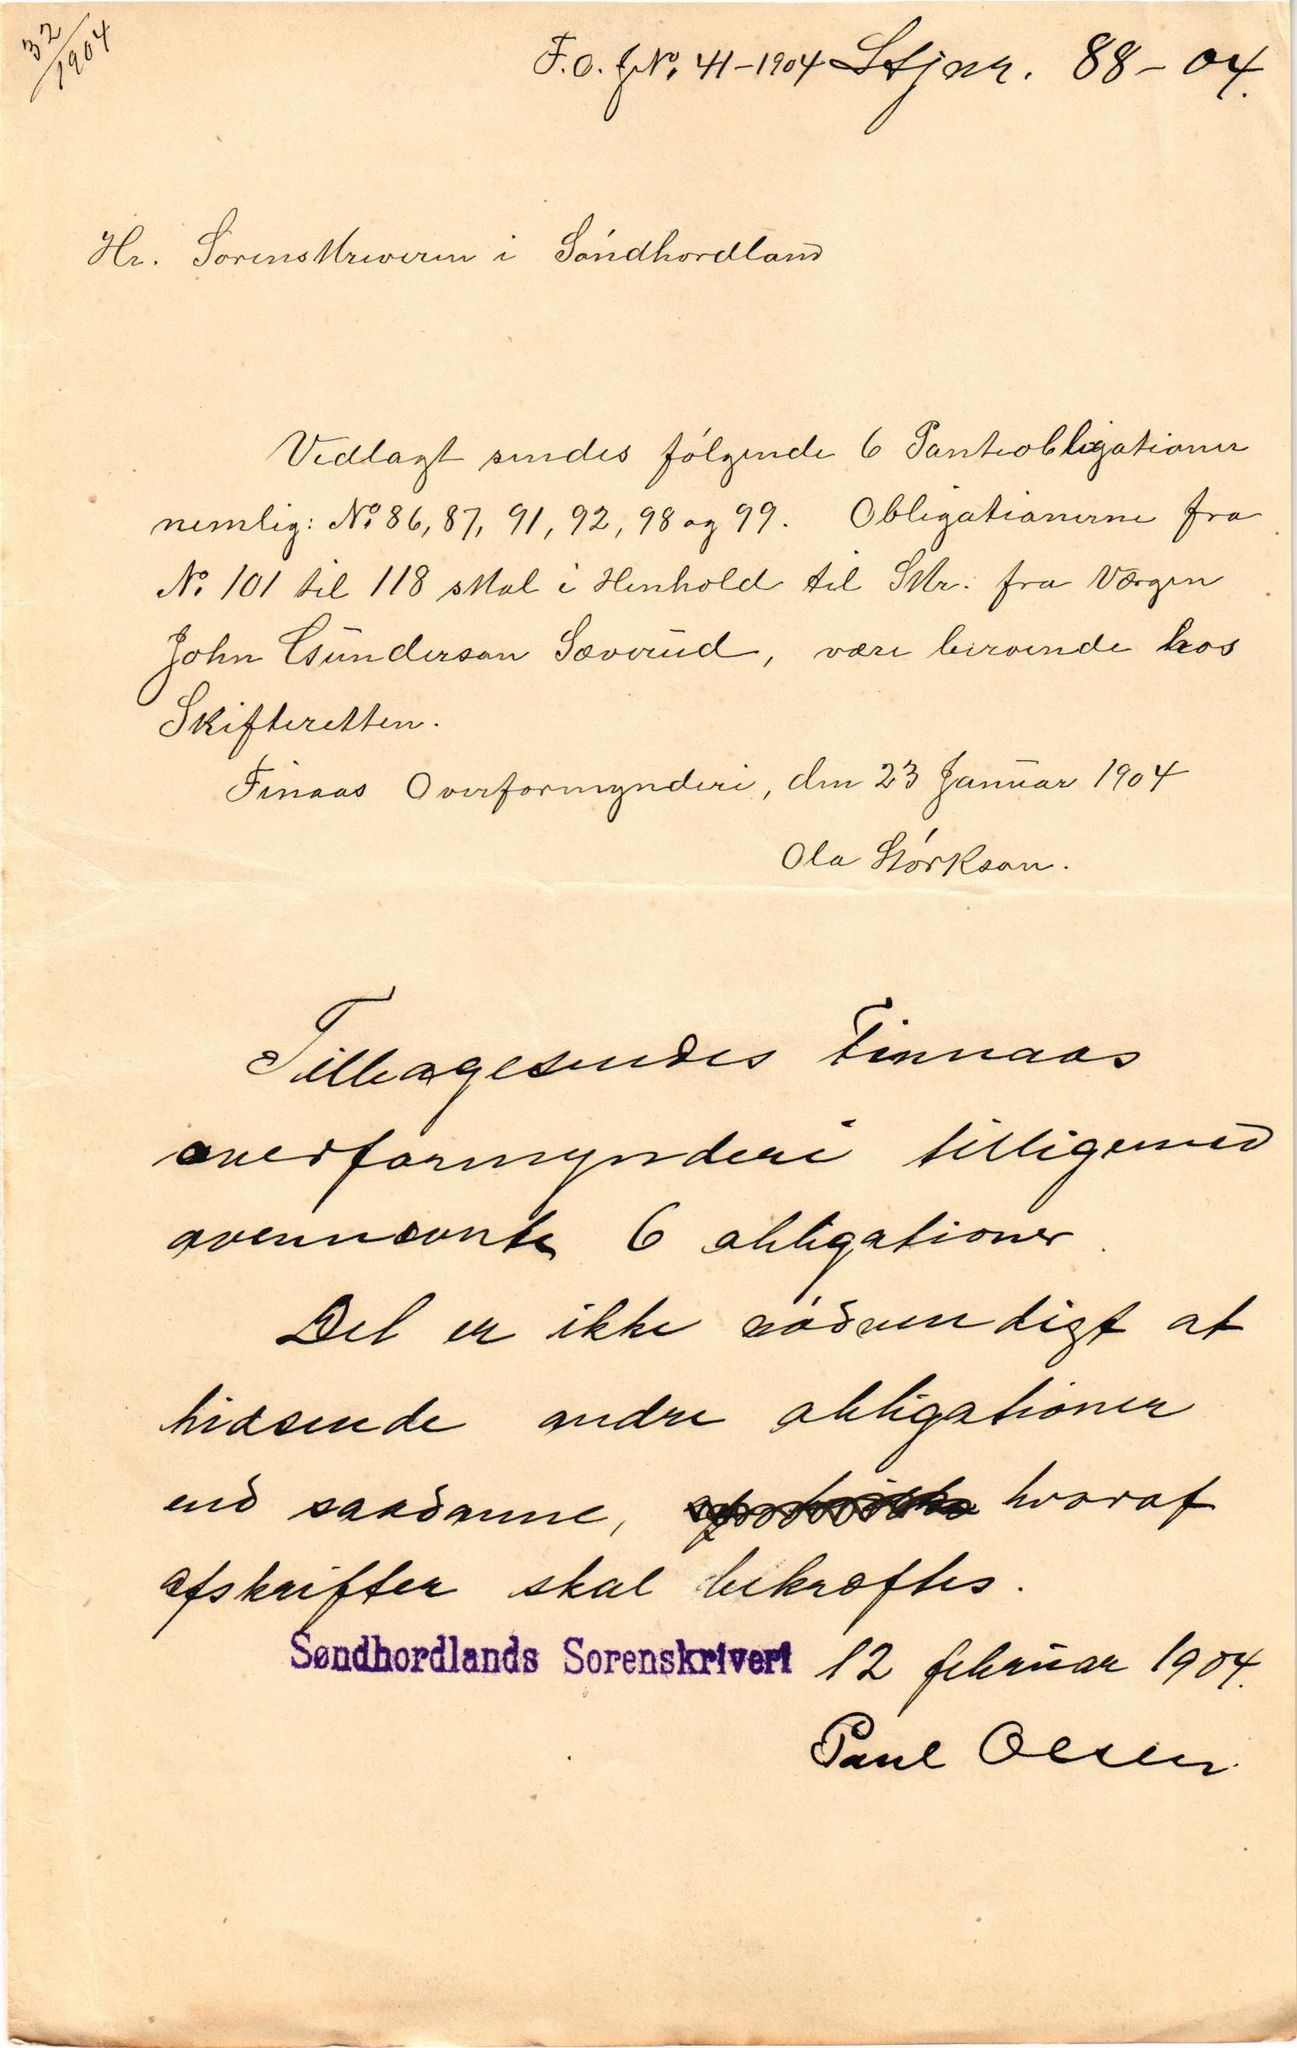 32/1904
F.O. JNo. 41-1904 Stjnr. 88-04.
Hr. Sorenskriveren i Söndhordland
Vedlagt sendes fölgende 6 Panteobligationer
nemlig: No. 86, 87, 91, 92, 98 og 99. Obligationerne fra
No. 101 til 118 skal i Henhold til Skr. fra Værgen
John Gunderson Sæverud, være beroende hos
Skifteretten.
Finaas Overformynderi, den 23 Januar 1904
Ola Störkson.
Tilbagesendes Finnaas
overformynderi tilligemed
ovennævnte 6 obligationer.
Det er ikke nödvendigt at
hidsende andre obligationer
end saadanne, hvoraf
afskrifter skal bekræftes.
Søndhordlands Sorenskriveri 12 februar 1904.
Paul Olsen.